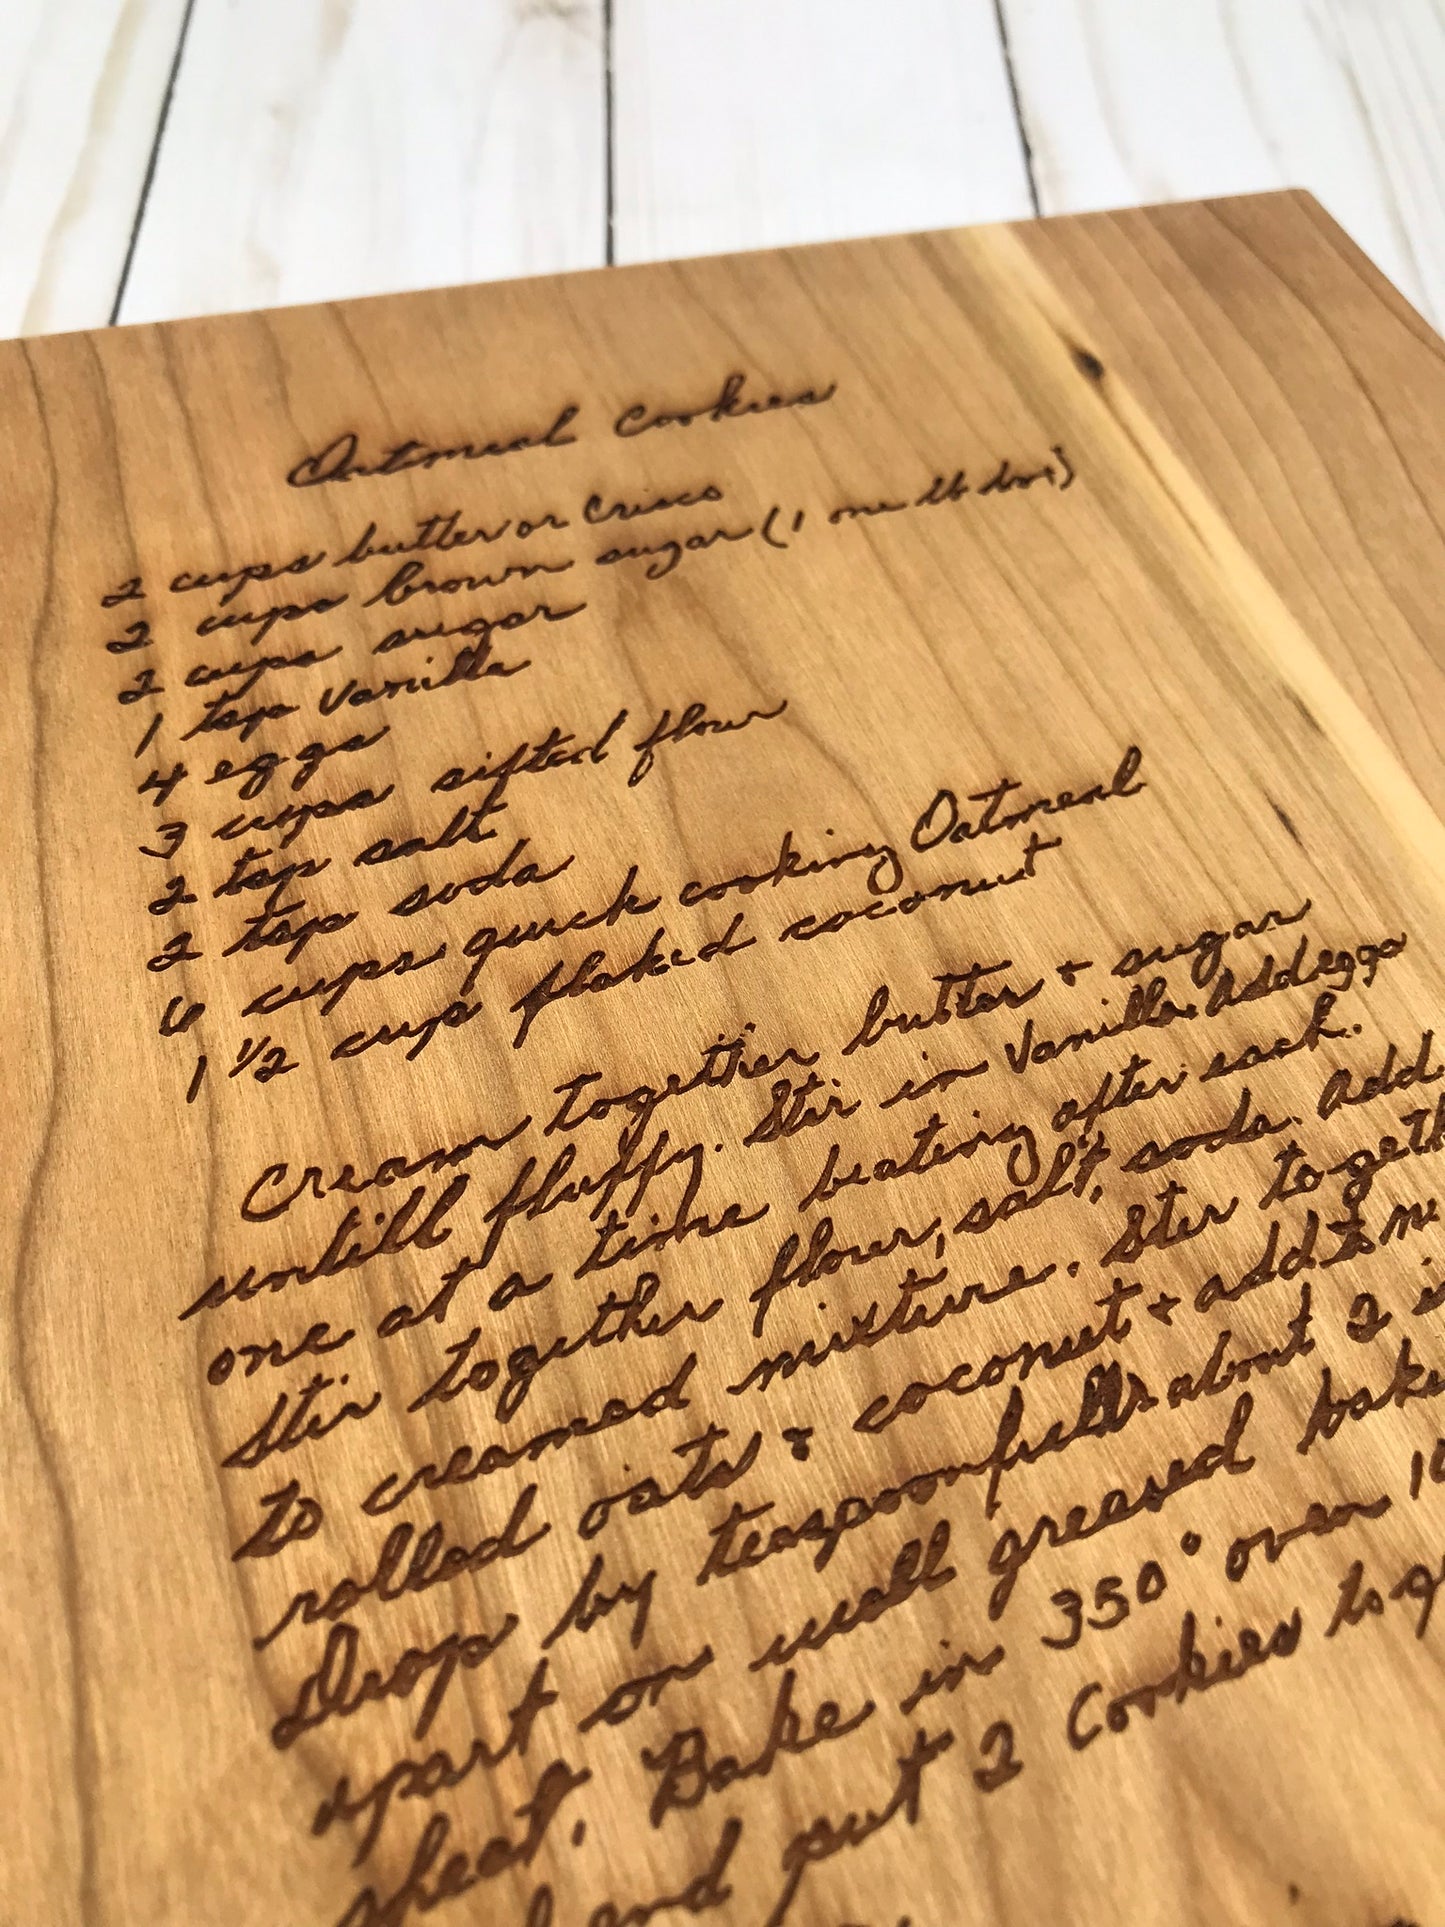 Oatmeal Cookies
2 cups butter or Crisco
2 cups brown sugar (1 one lb box)
2 cups sugar
1 tsp Vanilla
4 eggs
3 cups sifted flour
2 tsp salt
2 tsp soda
6 cups quick cooking Oatmeal
1 1/2 cup flaked coconut
Cream together butter + sugar
untill fluffy. Stir in Vanilla. Add eggs
one at a time beating after each.
Stir together flour, salt, soda. Add
to creamed mixture. Stir togeth
rolled oats + coconut + add to
Drop by teaspoonfulls about 2
apart on well greased
sheet. Bake in 350° oven
and put 2 Cookies